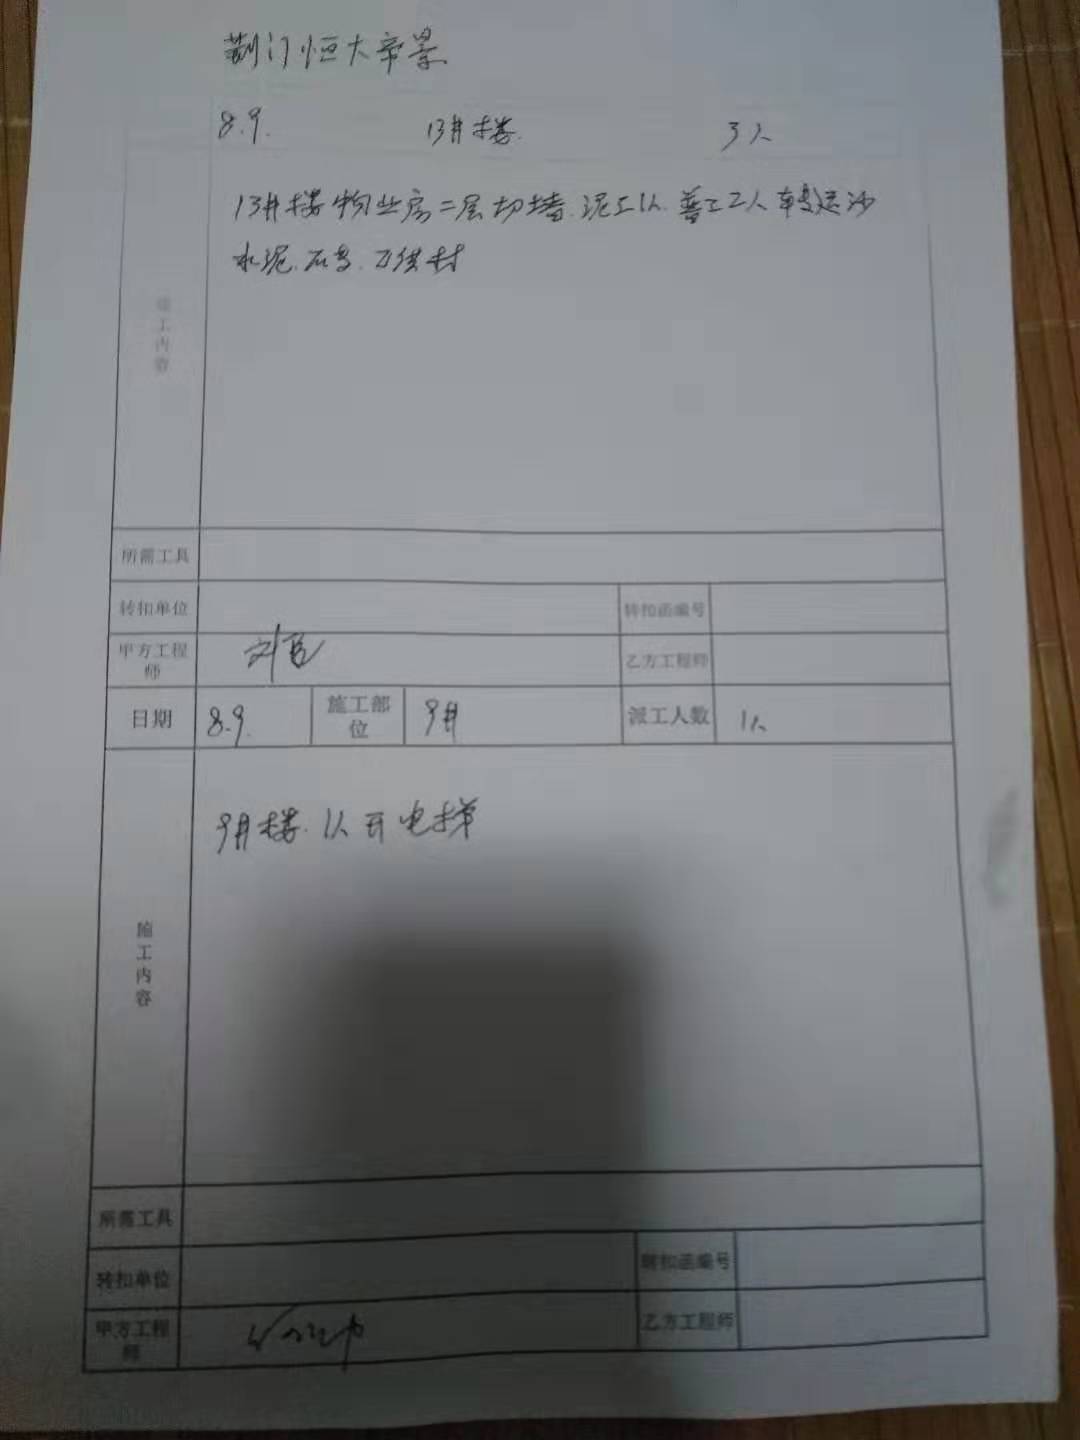 荆门恒大帝景
8.9. 13#楼. 3人
13#楼物业房二层切墙.泥工1人.普工2人转运沙
水泥.石膏.
施工内容
所需工具
转扣单位 转扣函编号
甲方工程师 刘 乙方工程师
日期 8.9. 施工部位 9# 派工人数 1人
9#楼.1人开电梯
施工内容
所需工具
转扣单位 转扣函编号
甲方工程师 乙方工程师